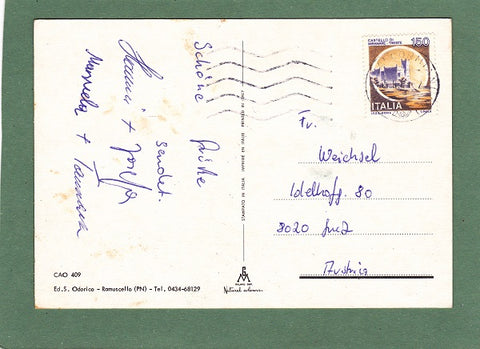 Schöne Grüße
sendet.
Hanni + Josefa
Manuela + Tamara
CAO 409
Ed. S. Odorico - Ramuscello (PN) - Tel. 0434-68129
Natural colour
CASTELLO DI
MIRAMARE - TRIESTE
150
ITALIA
Fr.
Weichsel
Idelhofg. 80
8020 Graz
Austria